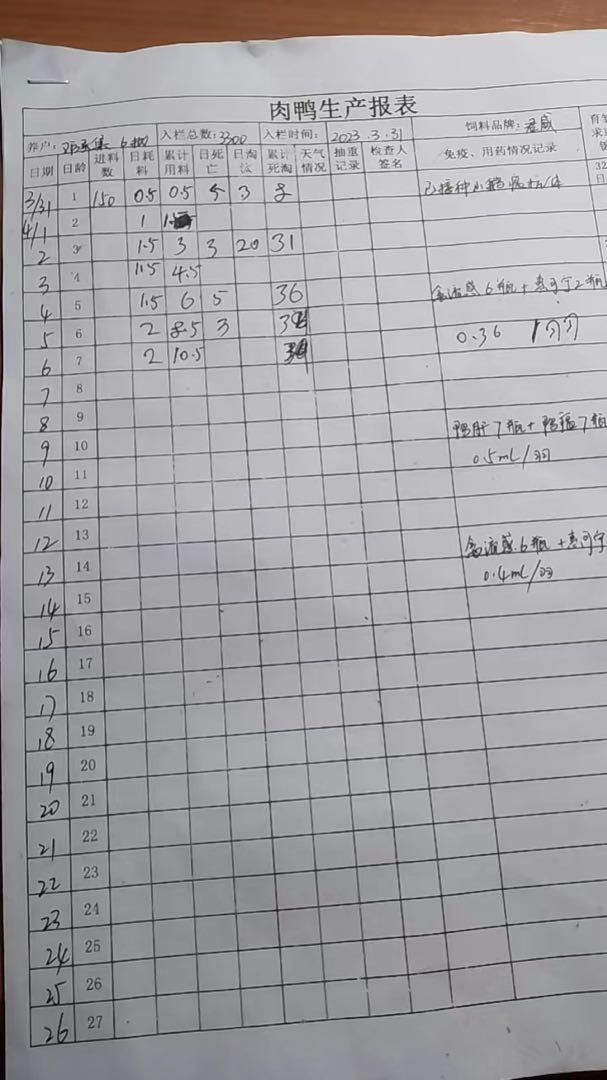 肉鸭生产报表
养户: 6批 入栏总数:3300 入栏时间: 2023.3.31 饲料品牌:
日期 日龄 进料数 日耗料 累计用料 日死亡 日淘汰 累计死淘 天气情况 抽重记录 检查人签名 免疫、用药情况记录
3/31 1 150 0.5 0.5 5 3 8 已接种小鹅瘟抗体
4/1 2 1 1.5
2 3 1.5 3 3 20 31
3 4 1.5 4.5
4 5 1.5 6 5 36 禽流感6瓶+ 2瓶
5 6 2 8.5 3 0.36
6 7 2 10.5
7 8
8 9
9 10 鸭肝7瓶+鸭瘟7瓶
10 11 0.5mL/羽
11 12
12 13
13 14 禽流感.6瓶+
14 15 0.4mL/羽
15 16
16 17
17 18
18 19
19 20
20 21
21 22
22 23
23 24
24 25
25 26
26 27